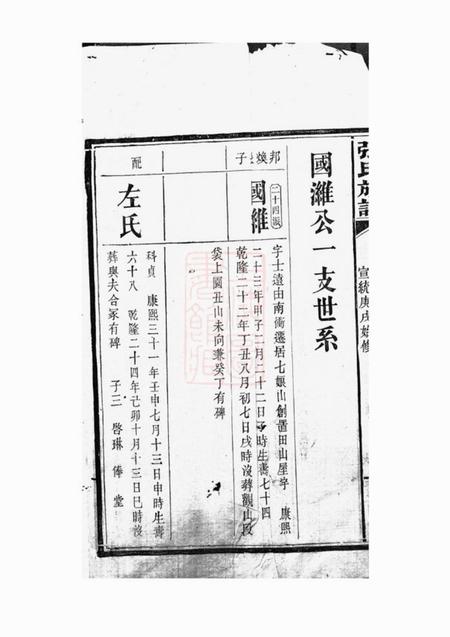 張氏族譜 宣統庚戌續修
國濰公一支世系
邦煥子
二十四派
國維
字士遠由南衝遷居七娘山創置田山屋宇 康熙
二十三年甲子二月二十二日子時生壽七十四
乾隆二十二年丁丑八月初七日戌時沒葬觀山段
袋上圖丑山未向兼癸丁有碑
配
左氏
科貞 康熙三十一年壬申七月十三日申時生壽
六十八 乾隆二十四年己卯十月十三日巳時沒
葬與夫合冢有碑 子三 啓琳 俸 堂